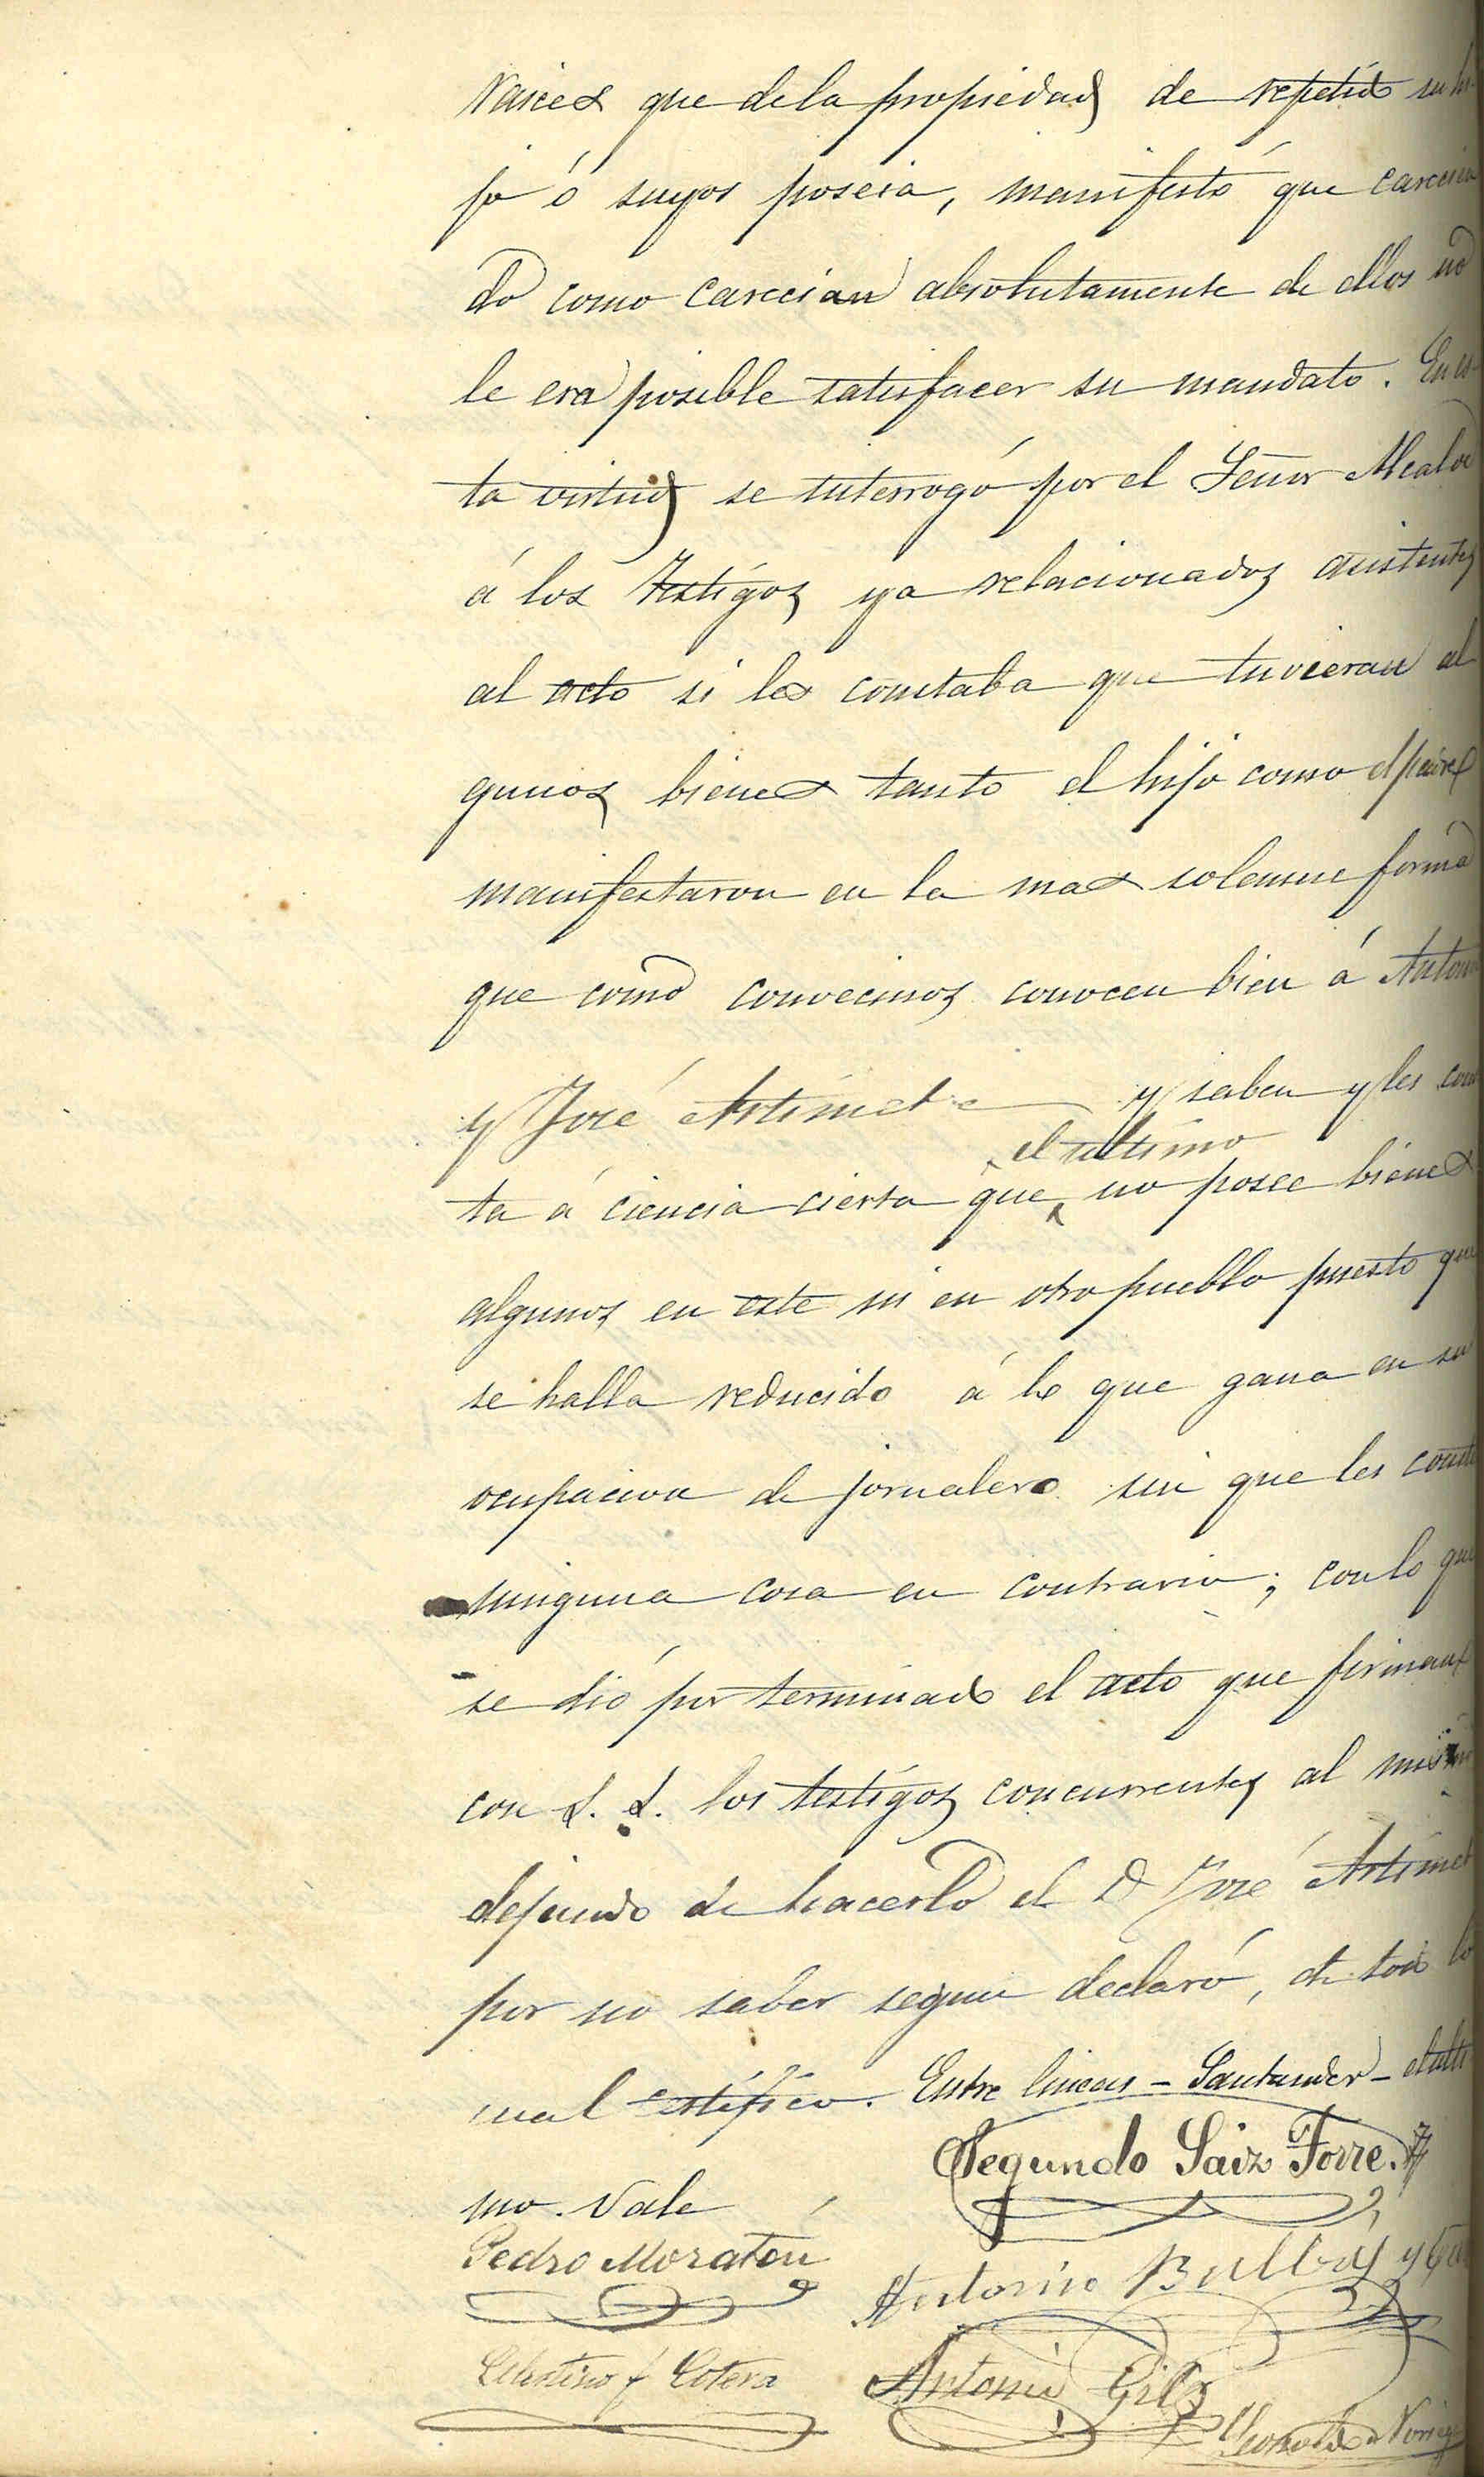 raices que dela propiedad de repetido su hi-
jo ó suyos poseia, manifestó que carecien
do como carecian absolutamente de ellos no
le era posible satisfacer su mandato. En es-
ta virtud se interrogó por el Señor Alcalde
á los testigos ya relacionados asistentes
al acto si les constaba que tuvieran al
gunos bienes tanto el hijo como el padre
manifestaron en la mas solemne forma
que como convecinos conocen bien á Antonio
y José Artimeta y saben y les cons
el ultimo
ta á ciencia cierta que no posee bienes
algunos en este ni en otro pueblo puesto que
se halla reducido á lo que gana en su
ocupacion de jornalero sin que les conste
ninguna cosa en contrario; con lo que
se dió por terminado el acto que firman
con S. S. los testigos concurrentes al mismo
dejando de hacerlo el D José
por no saber segun declaró, de todo lo
cual certifico. Entre lineas - Santander - el ulti
mo. Vale
Segundo Saiz Torre
Pedro Moratón
Antonio Bulbás y
Celestino f Cotera
Antonio Gil
Leonardo Noriega